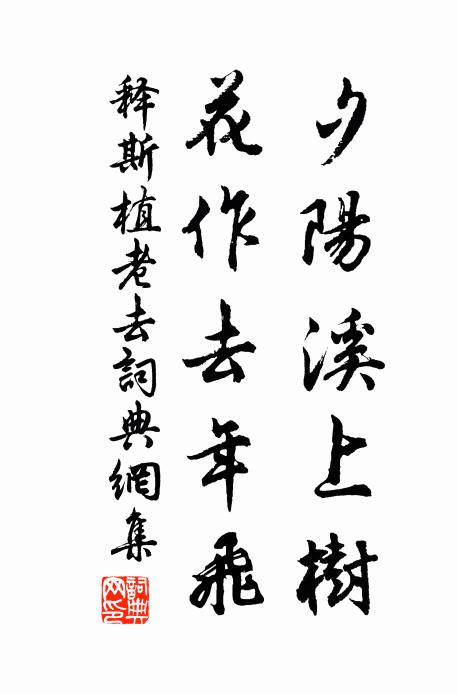 夕陽溪上樹
花作去年飛
释斯植老去詞典網集
詞典
网印